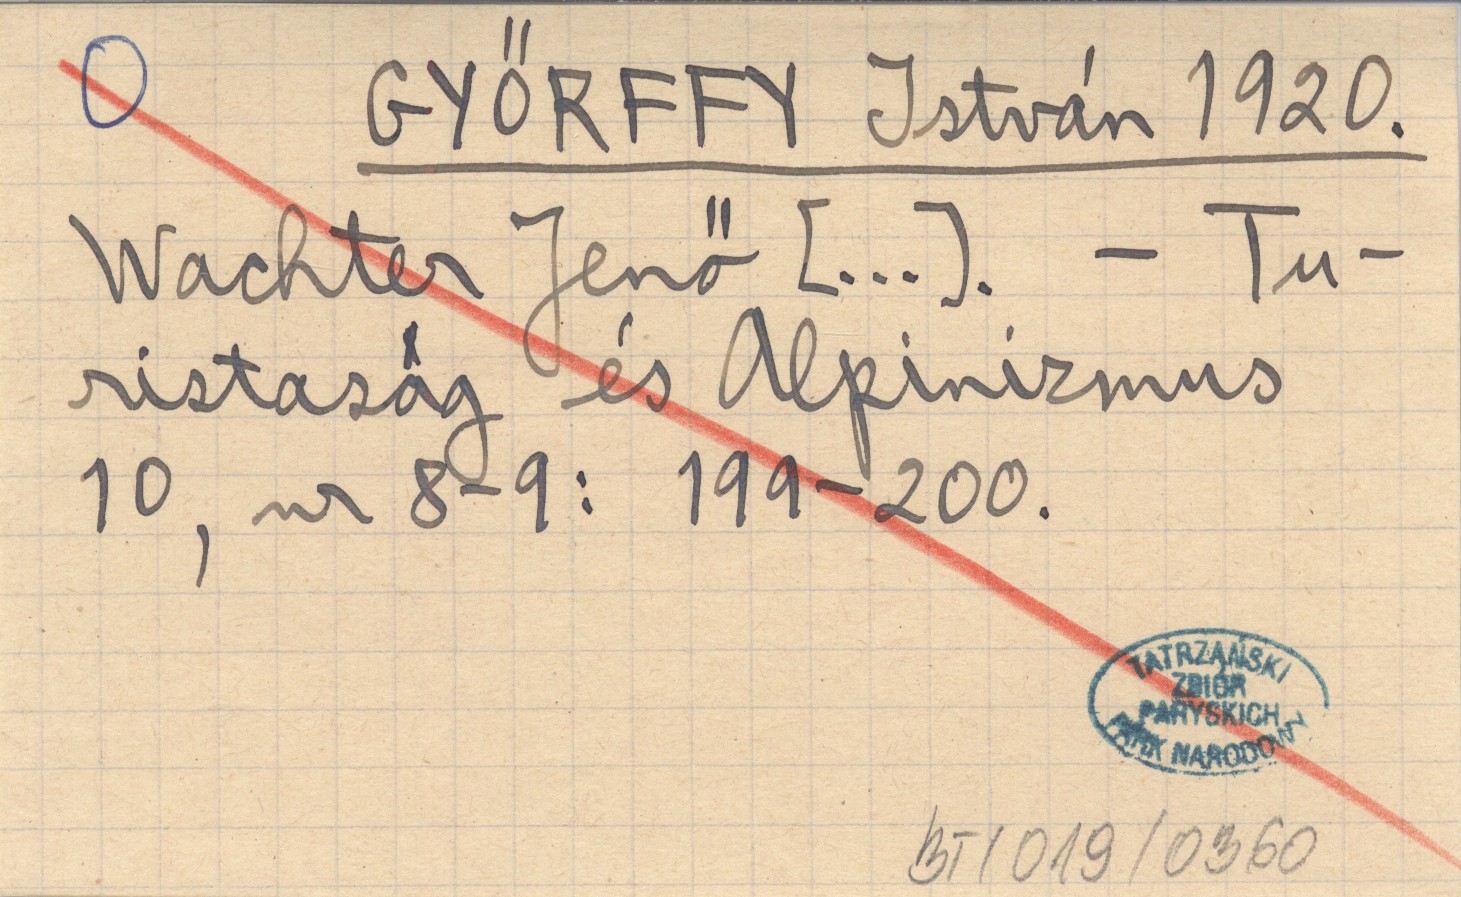 O GYŐRFFY István 1920.
Wachter Jenő [...]. - Tu-
ristaság és Alpinizmus
10, nr 8-9: 199-200.
TATRZAŃSKI
ZBIÓR
PARYSKICH
PARK NARODOWY
BT/019/0360